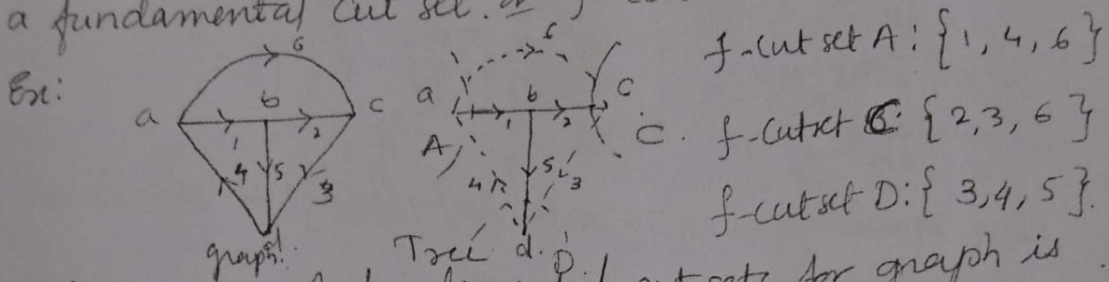 a fundamental cut set.
Ex:
6
a b c
1 2
4 5 3
graph!
6
a b c
1 2
A C.
4 5 3
Tree d. D.
f-cut set A: {1, 4, 6}
f-cutset C: {2, 3, 6}
f-cutset D: {3, 4, 5}.
for graph is